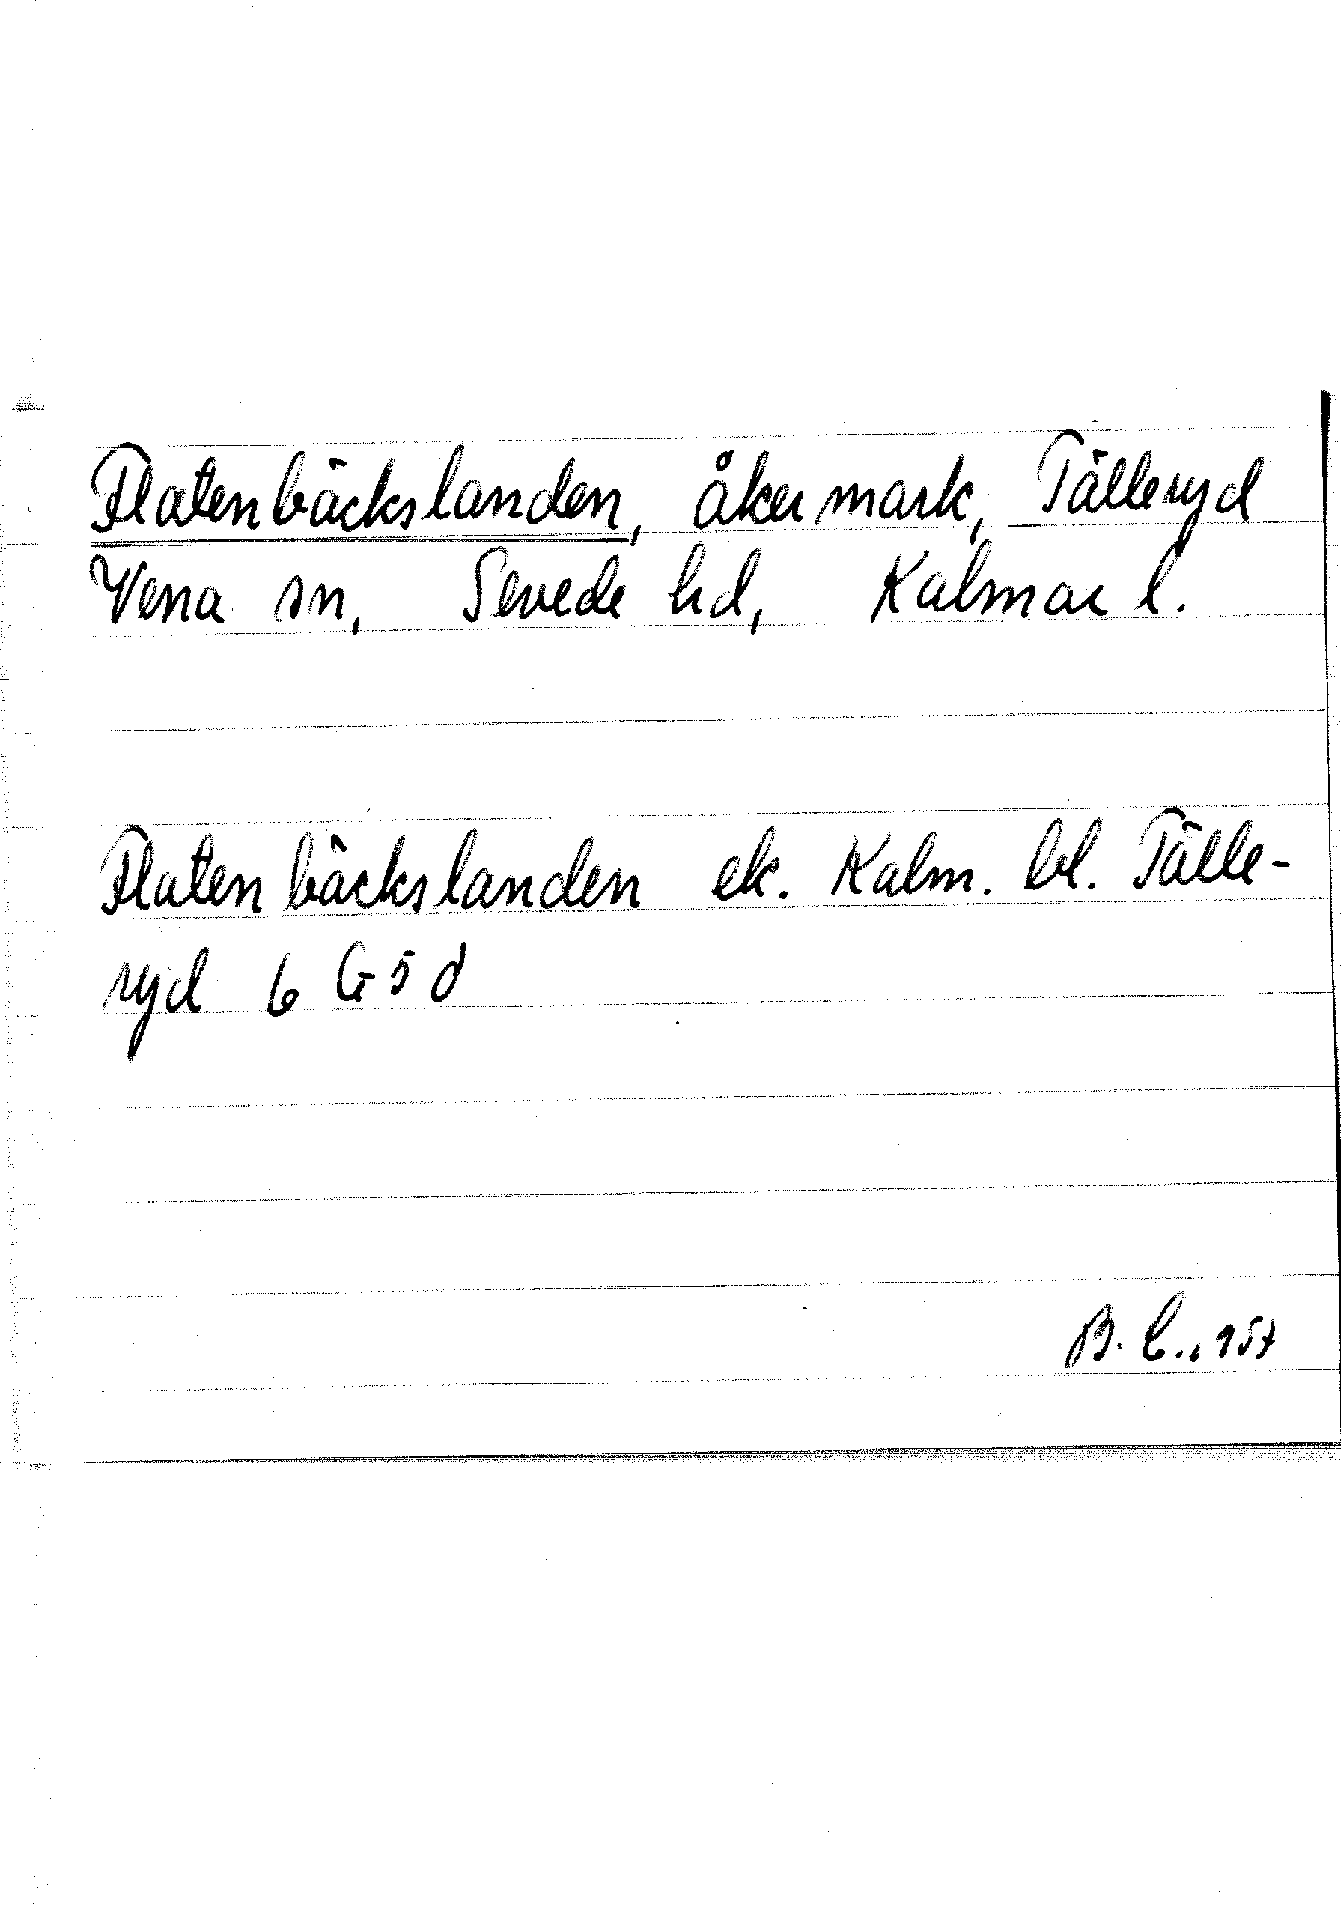 Flatenbäckslanden, åkermark, Tälleryd
Vena sn, Sevede hd, Kalmar l.
Flatenbäckslanden ek. Kalm. bl. Tälle-
ryd 6 G 5 d
B. C., 157